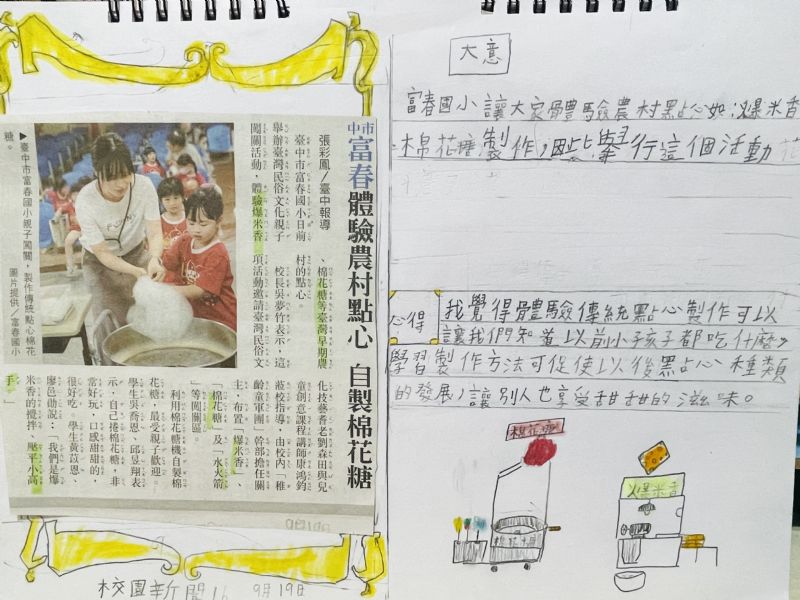 中市
富春體驗農村點心 自製棉花糖
張彩鳳/臺中報導
臺中市富春國小日前
舉辦臺灣民俗文化親子
闖關活動,體驗爆米香
、棉花糖等臺灣早期農
村的點心。
校長吳夢竹表示,這
項活動邀請臺灣民俗文
化技藝耆老劉森田與兒
童創意課程講師康鴻鈞
蒞校指導,由校內「稚
齡童軍團」幹部擔任關
主,布置「爆米香」、
「棉花糖」及「水火箭
」等闖關區。
利用棉花糖機自製棉
花糖,最受親子歡迎。
學生吳香恩、邱昱翔表
示,自己捲棉花糖,非
常好玩,口感甜甜的,
很好吃。學生黃苡恩、
廖邑勛說:「我們是爆
米香的攪拌、壓平小高
手。」
▶臺中市富春國小親子闖關,製作傳統點心棉花
糖。
圖片提供/富春國小
校園新聞16 9月19日
大意
富春國小讓大家體驗農村點心如:爆米香
棉花糖製作,因此舉行這個活動
心得
我覺得體驗傳統點心製作可以
讓我們知道以前小孩子都吃什麼,
學習製作方法可促使以後點心種類
的發展,讓別人也享受甜甜的滋味。
棉花糖
爆米香